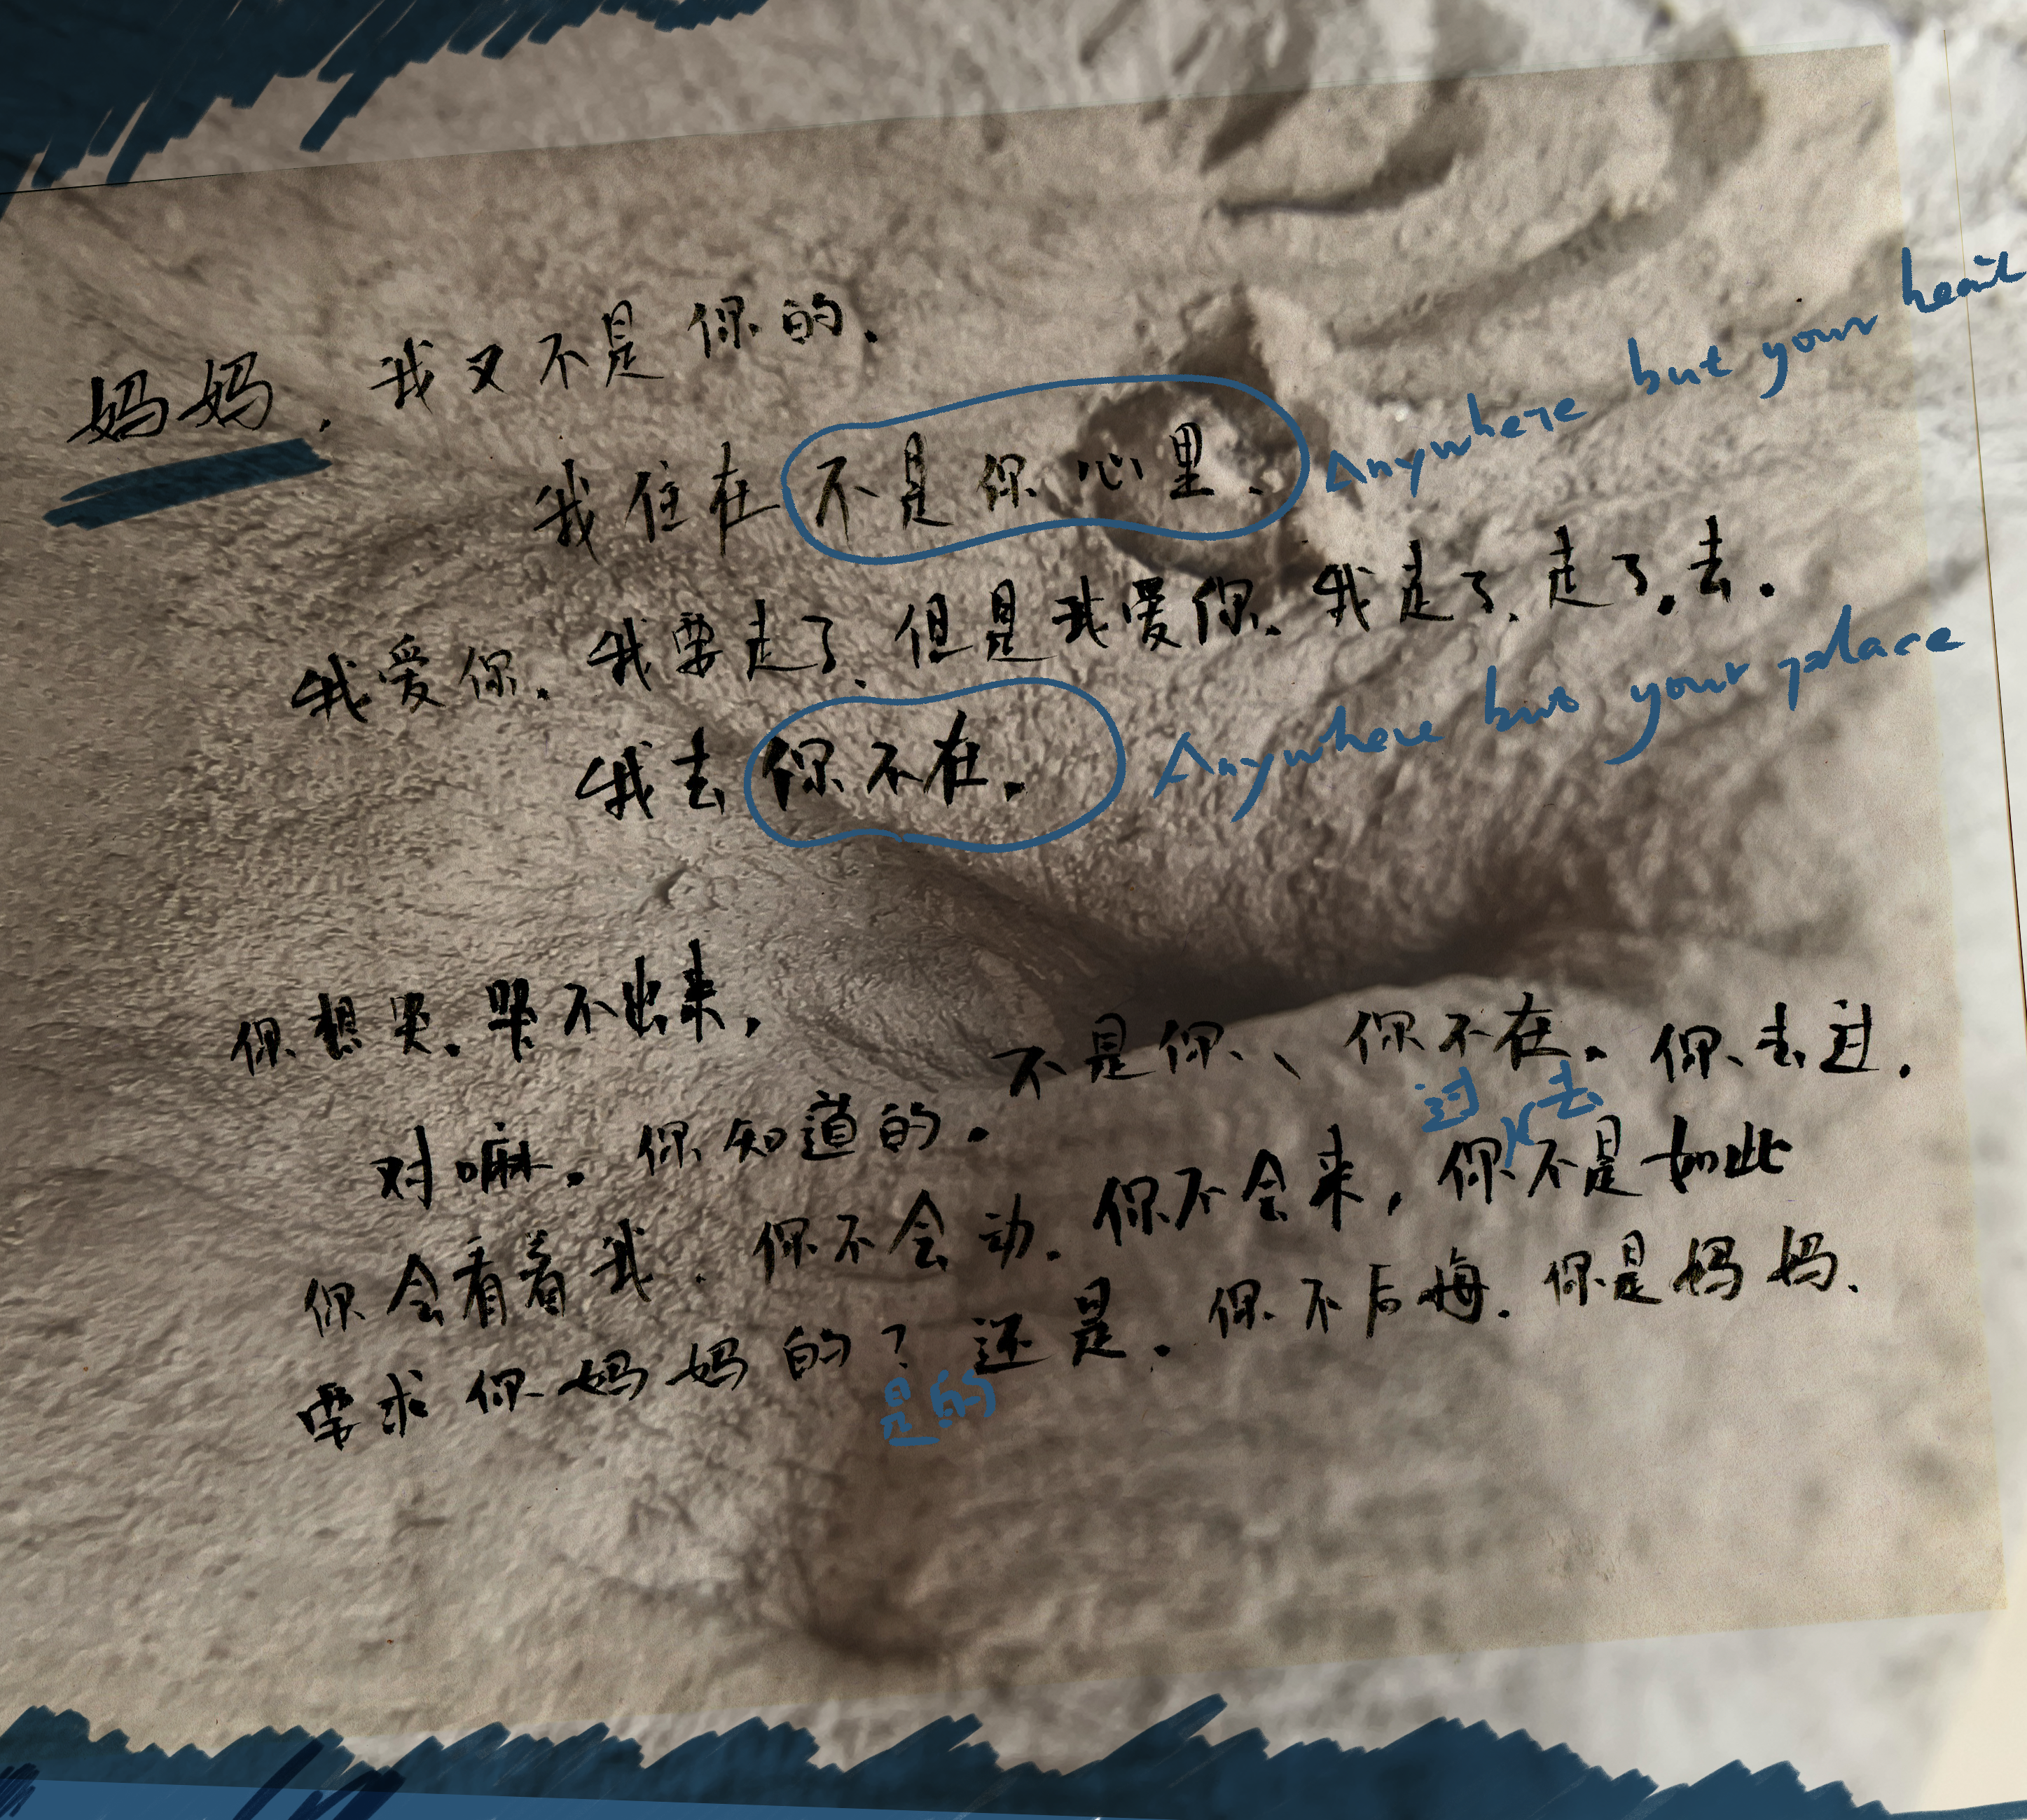 妈妈.我又不是你的.
我住在不是你心里.
Anywhere but your heart
我爱你.我要走了.但是我爱你.我走了.走了.去.
我去你不在.
Anywhere but your place
你想哭.哭不出来,
不是你、你不在.你去过.
对嘛.你知道的.
过去
你会看着我.你不会动.你不会来,你不是如此
要求你妈妈的?还是.你不后悔.你是妈妈.
是的